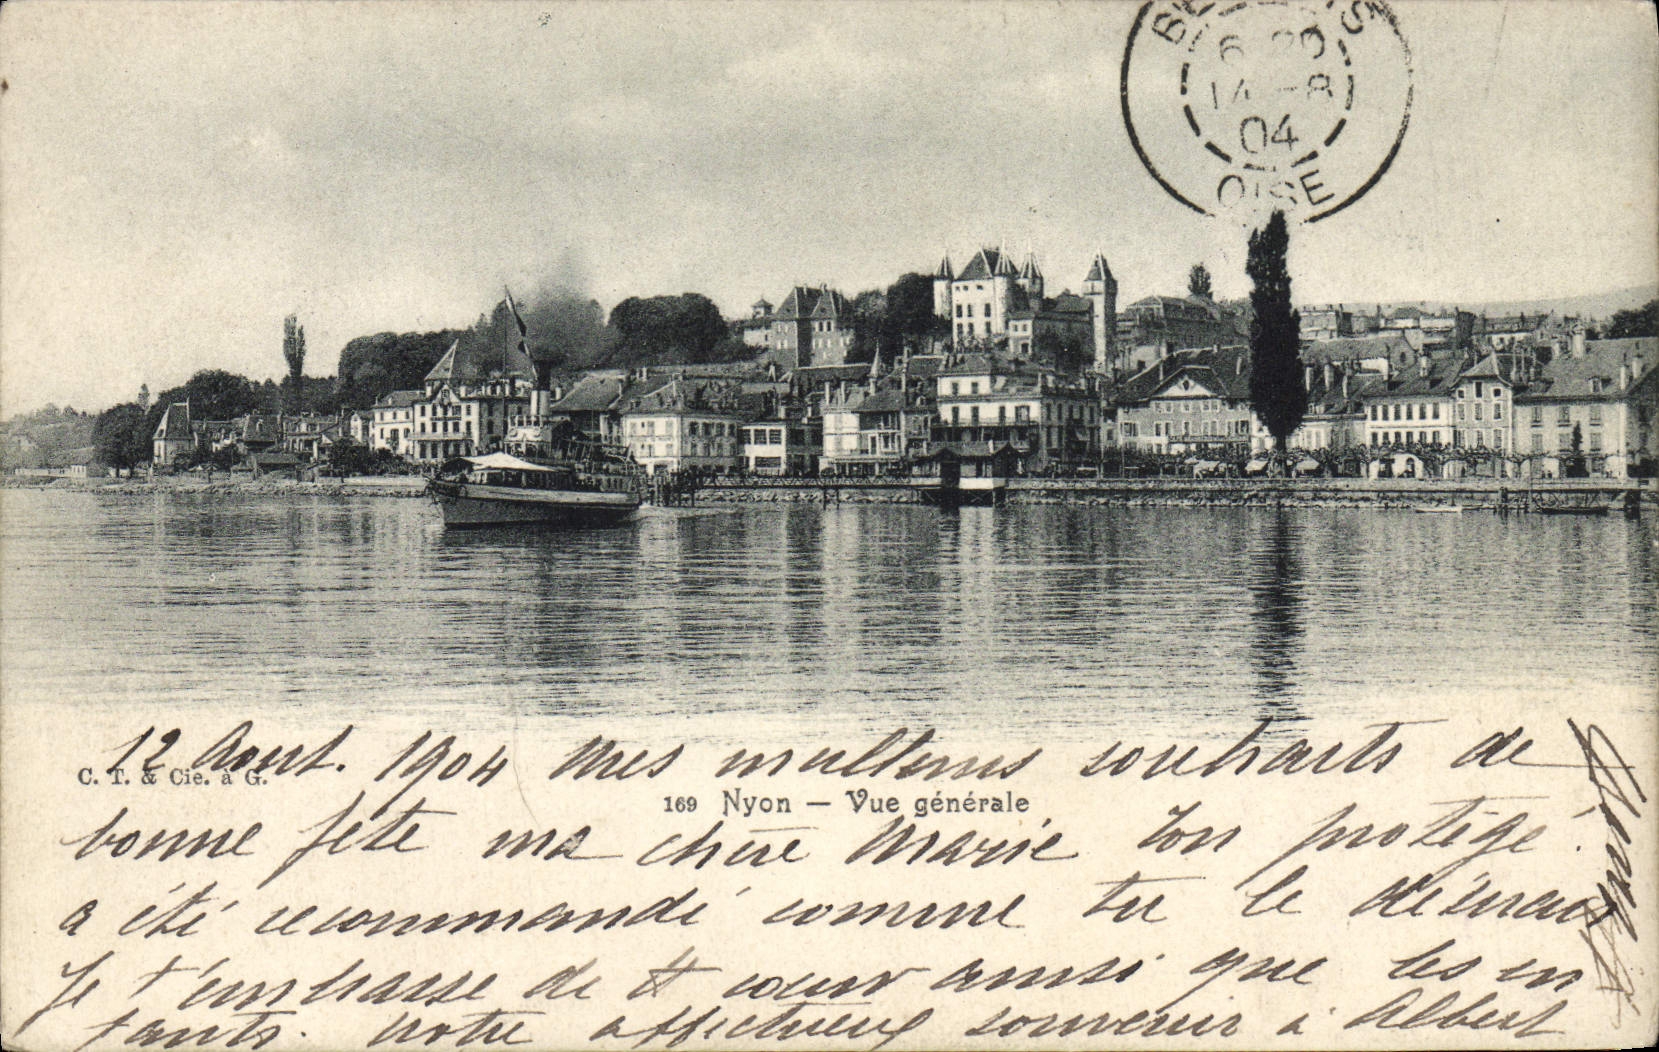 6 20
14 -8
04
OISE
12 Aout. 1904 Mes meilleurs souhaits de
C. T. & Cie. à G.
169 Nyon — Vue générale
bonne fête ma chère Marie Ton protégé
a été recommandé comme tu le désirais
Je t'embrasse de tt cœur ainsi que les en
fants. Notre affectueux souvenir à Albert